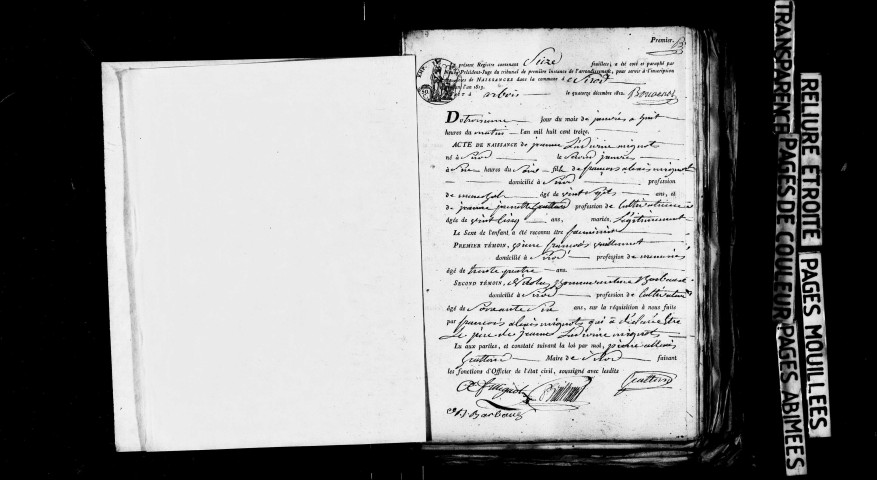 Premier.
Le présent Registre contenant Seize feuillets, a été coté et paraphé par
Nous Président-Juge du tribunal de première instance de l'arrondissement, pour servir à l'inscription
des actes de NAISSANCES dans la commune de Sirod
pendant l'an 1813.
Fait à arbois le quatorze décembre 1812.
Du troisieme jour du mois de janvier a huit
heures du matin l'an mil huit cent treize.
ACTE DE NAISSANCE de jeanne Ludivine mignot
né à Sirod le Second janvier
à Six heures du Soir fille de françois alexis mignot
domicilié à Sirod profession
de âgé de vingt Sept ans, et
de jeanne jeanette profession de cultivatrice
âgée de vingt Cinq ans, mariés, Légitimement
Le Sexe de l'enfant a été reconnu être feminin
PREMIER TÉMOIN, pierre françois
domicilié à Sirod profession de
âgé de trente quatre ans.
SECOND TÉMOIN, Barbaud
domicilié à Sirod profession de Cultivateur
âgé de Soixante Six ans, sur la réquisition à nous faite
par françois alexis mignot qui a déclaré être
Le père de jeanne Ludivine mignot
Lu aux parties, et constaté suivant la loi par moi, pierre alexis
Maire de Sirod faisant
les fonctions d'Officier de l'état civil, soussigné avec lesdits
Barbaud
RELIURE ETROITE | PAGES MOUILLEES
TRANSPARENCE | PAGES DE COULEUR | PAGES ABIMEES